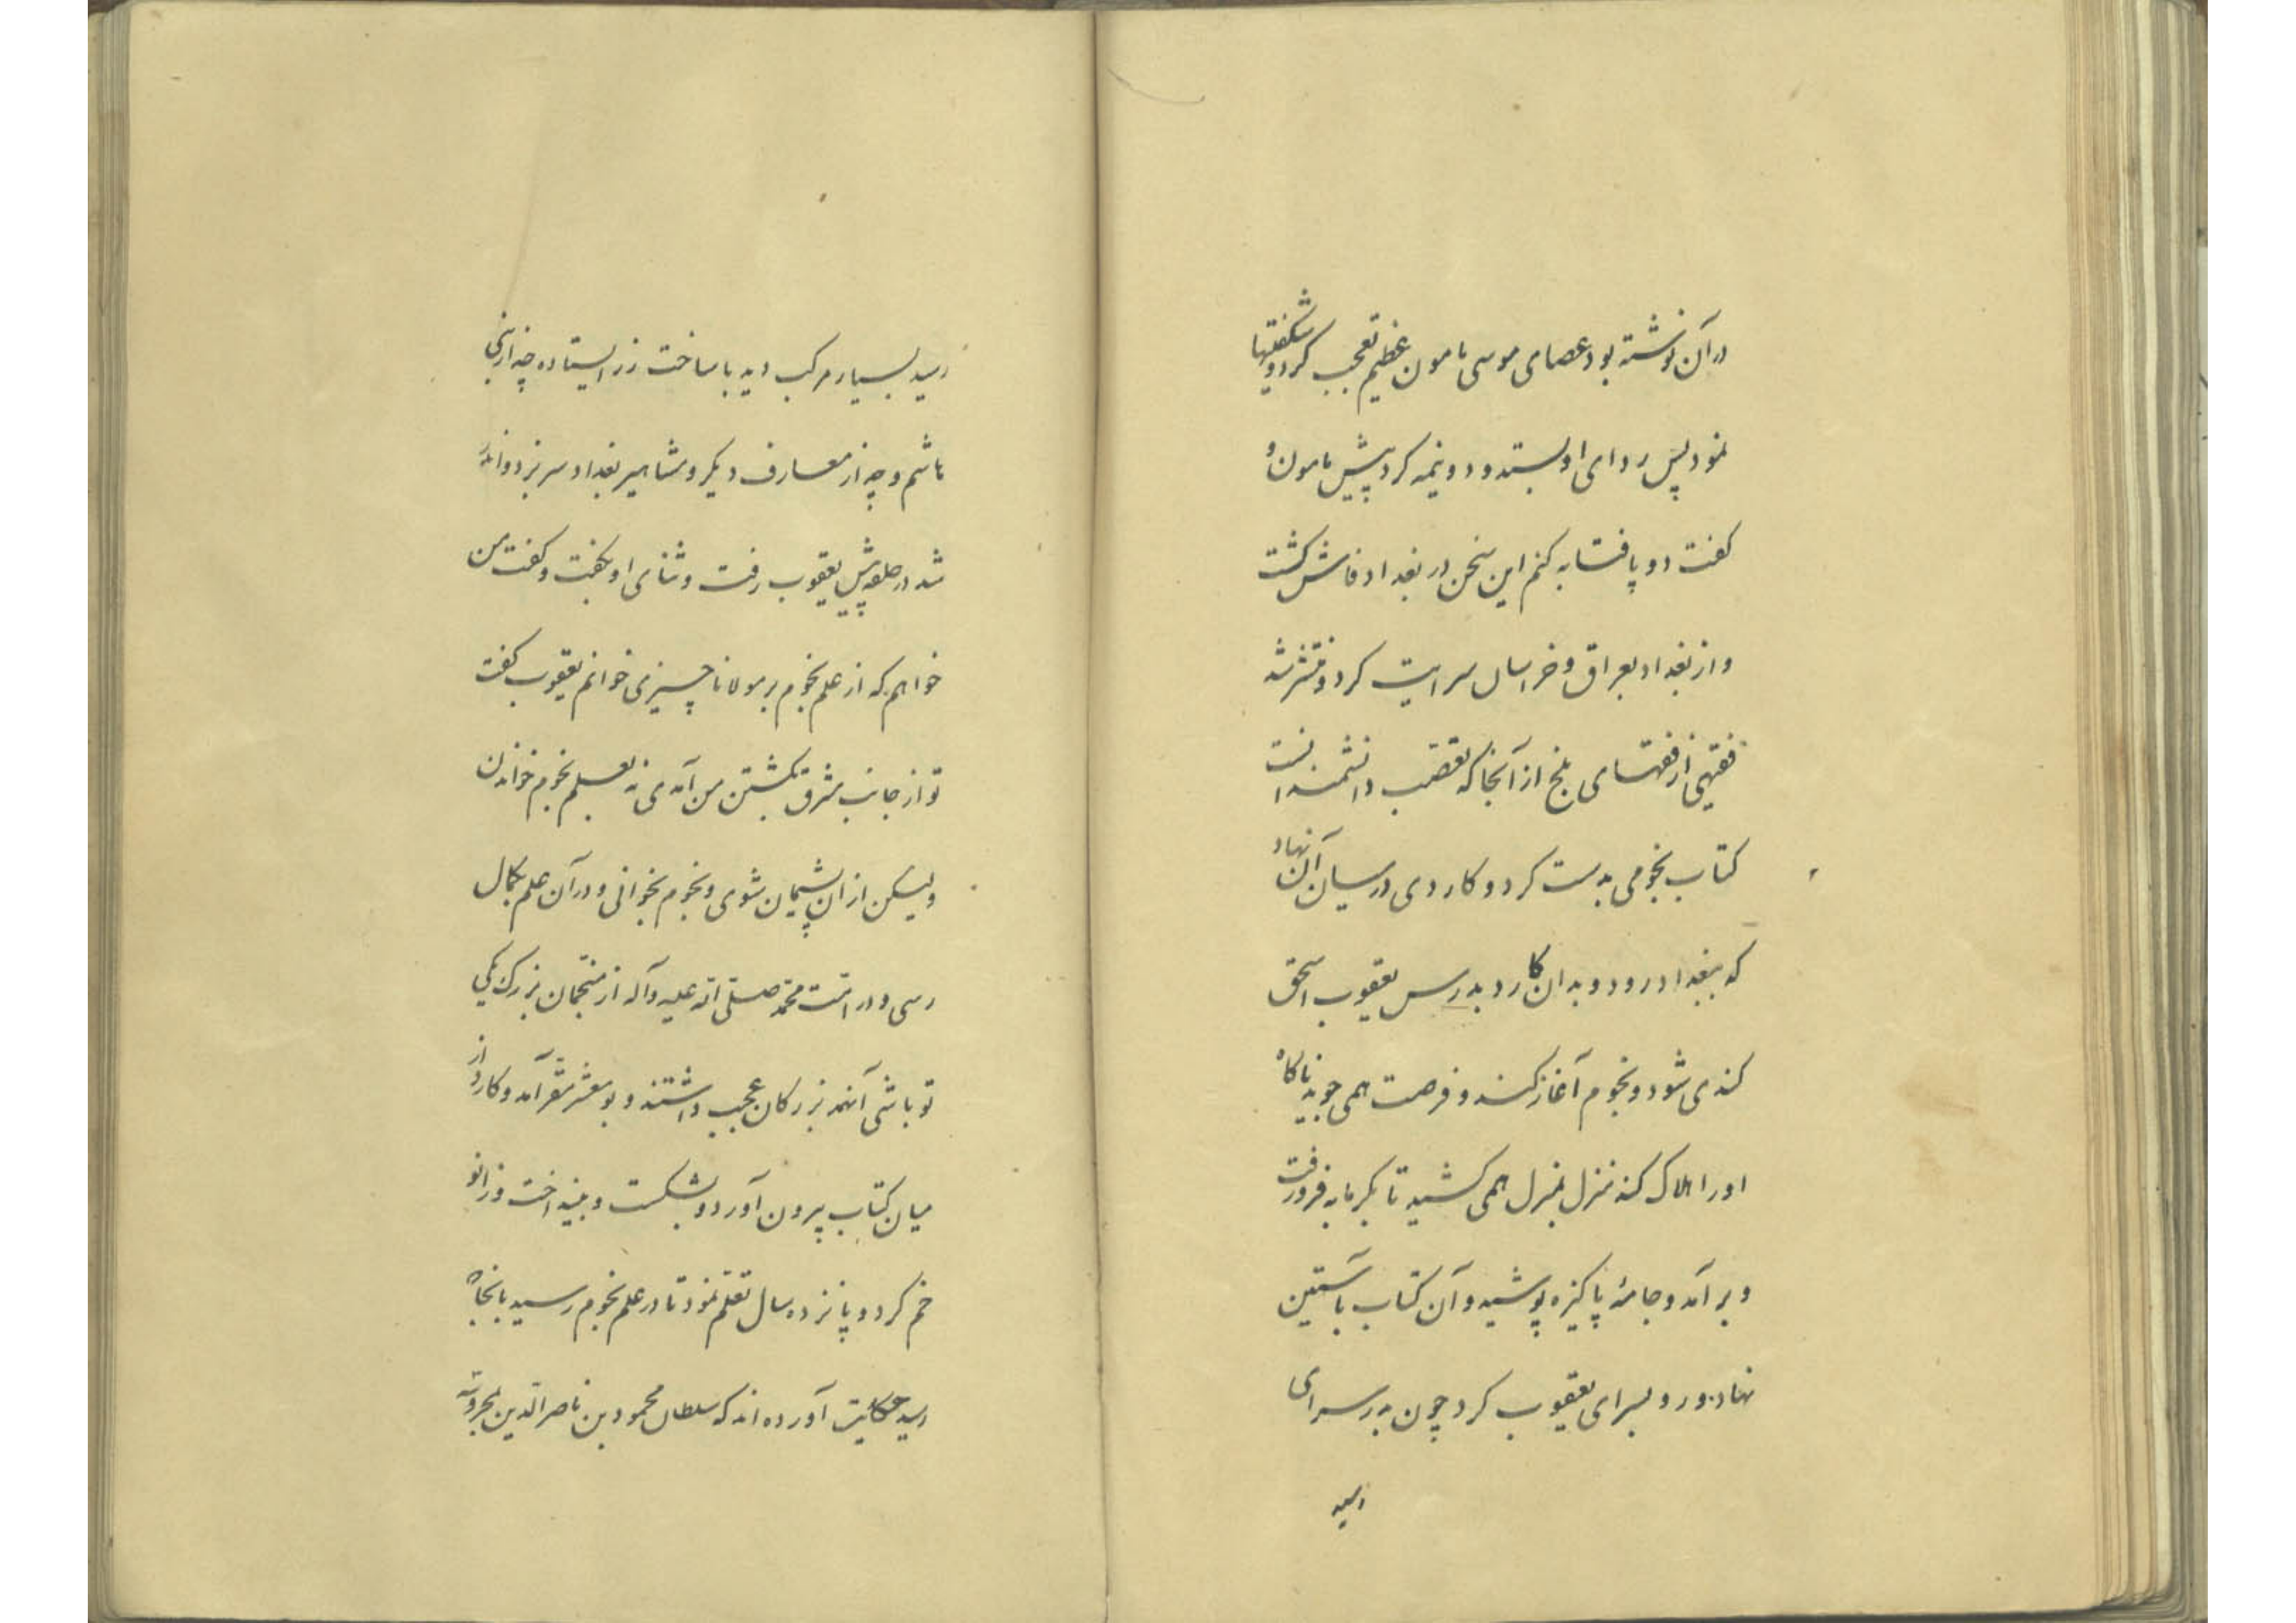 در آن نوشته بود عصای موسی مامون عظیم تعجب کرد و شگفتیها
نمود پس ردای او بستد و دو نیمه کرد پیش مامون و
کفت دو پایتابه کنم این سخن در بغداد فاش کشت
و از بغداد بعراق و خراسان سرایت کرد و منتشر شد
فقیهی از فقهای بلخ از آنجا که تعصب دانشمندانست
کتاب نجومی بدست کرد و کاردی در میان آن نهاد
که ببغداد رود و بدان کارد بدرس یعقوب اسحق
کندی شود و نجوم آغاز کند و فرصت همی جوید ناکاه
اورا هلاک کند منزل بمنزل همی کشید تا بکرمابه فرو رفت
و برآمد و جامهٔ پاکیزه پوشید و آن کتاب بآستین
نهاد و رو بسرای یعقوب کرد چون بدر سرای
رسید
رسید بسیار مرکب دید با ساخت زر ایستاده چه از بنی
هاشم و چه از معارف دیکر و مشاهیر بغداد سر بزد و اندر
شد در حلقه پیش یعقوب رفت و ثنای او بکفت و کفت من
خواهم که از علم نجوم بر مولانا چیزی خوانم یعقوب کفت
تو از جانب مشرق بکشتن من آمدی نه بعلم نجوم خواندن
ولیکن از آن پشیمان شوی و نجوم بخوانی و در آن علم بکمال
رسی و در امت محمد صلی الله علیه وآله از منجمان بزرک یکی
تو باشی آنهمه بزرکان عجب داشتند و بومعشر مقر آمد و کارد از
میان کتاب بیرون آورد و بشکست و بینداخت و زانو
خم کرد و پانزده سال تعلم نمود تا در علم نجوم رسید بانجا که
رسید حکایت آورده اند که سلطان محمود بن ناصرالدین